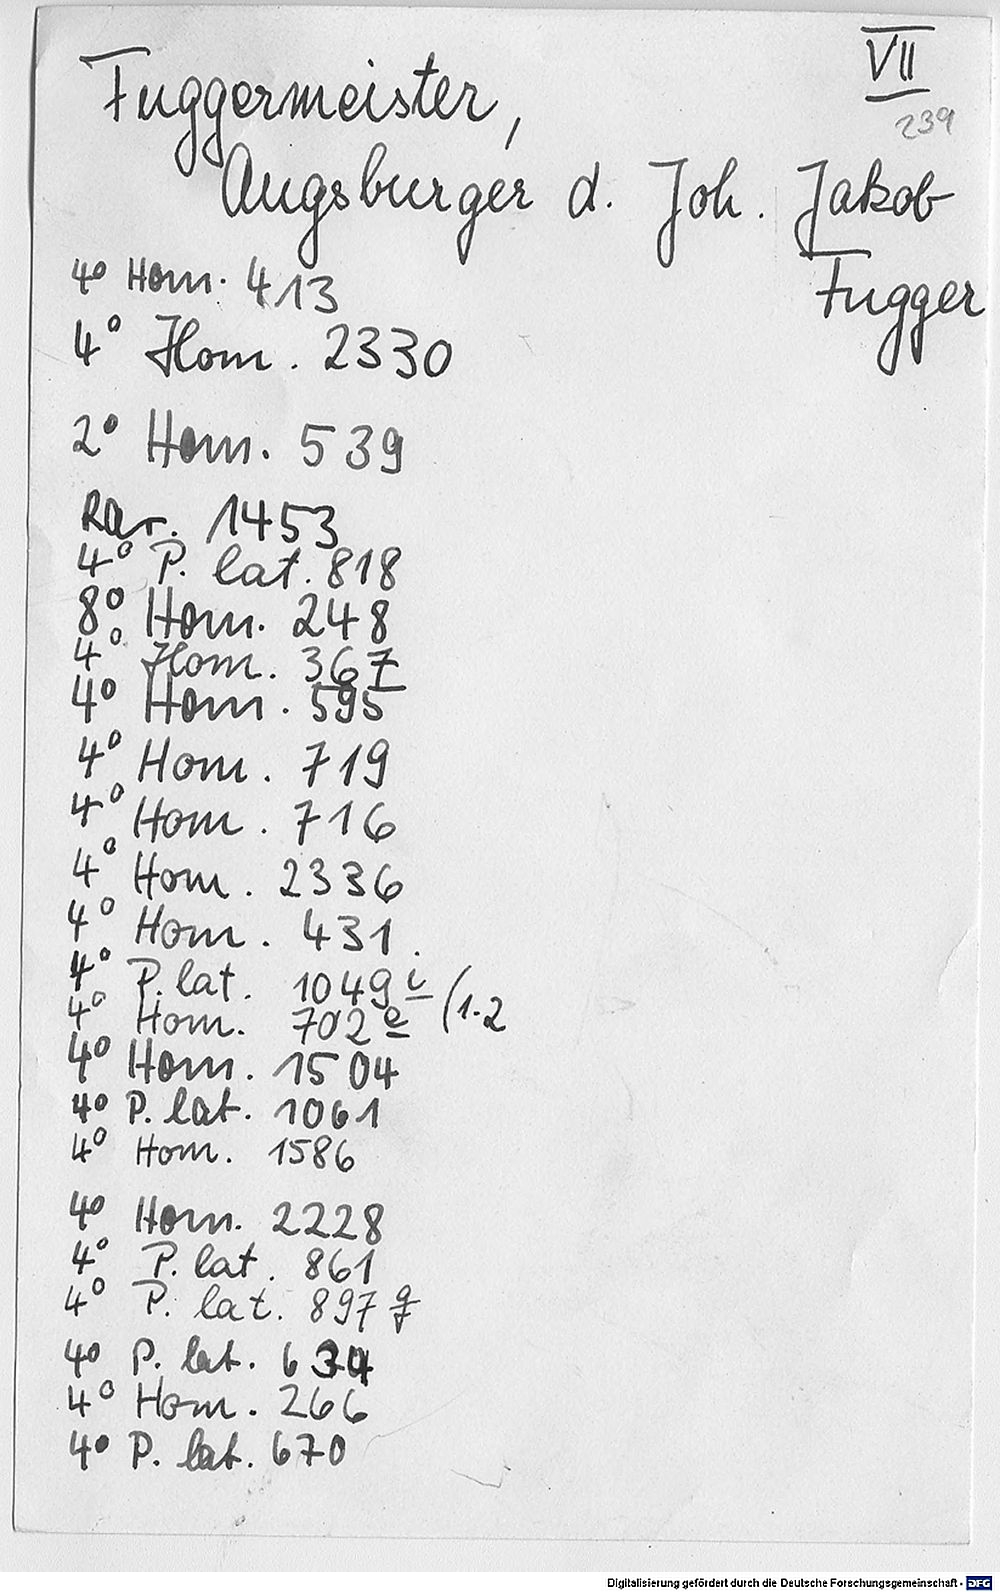 VII
239
Fuggermeister,
Augsburger d. Joh. Jakob
Fugger
4° Hom. 413
4° Hom. 2330
2° Hom. 539
Rar. 1453
4° P. lat. 818
8° Hom. 248
4° Hom. 367
4° Hom. 595
4° Hom. 719
4° Hom. 716
4° Hom. 2336
4° Hom. 431.
4° P. lat. 1049 i
4° Hom. 702 e (1.2
4° Hom. 1504
4° P. lat. 1061
4° Hom. 1586
4° Hom. 2228
4° P. lat. 861
4° P. lat. 897 g
4° P. lat. 634
4° Hom. 266
4° P. lat. 670
Digitalisierung gefördert durch die Deutsche Forschungsgemeinschaft - DFG